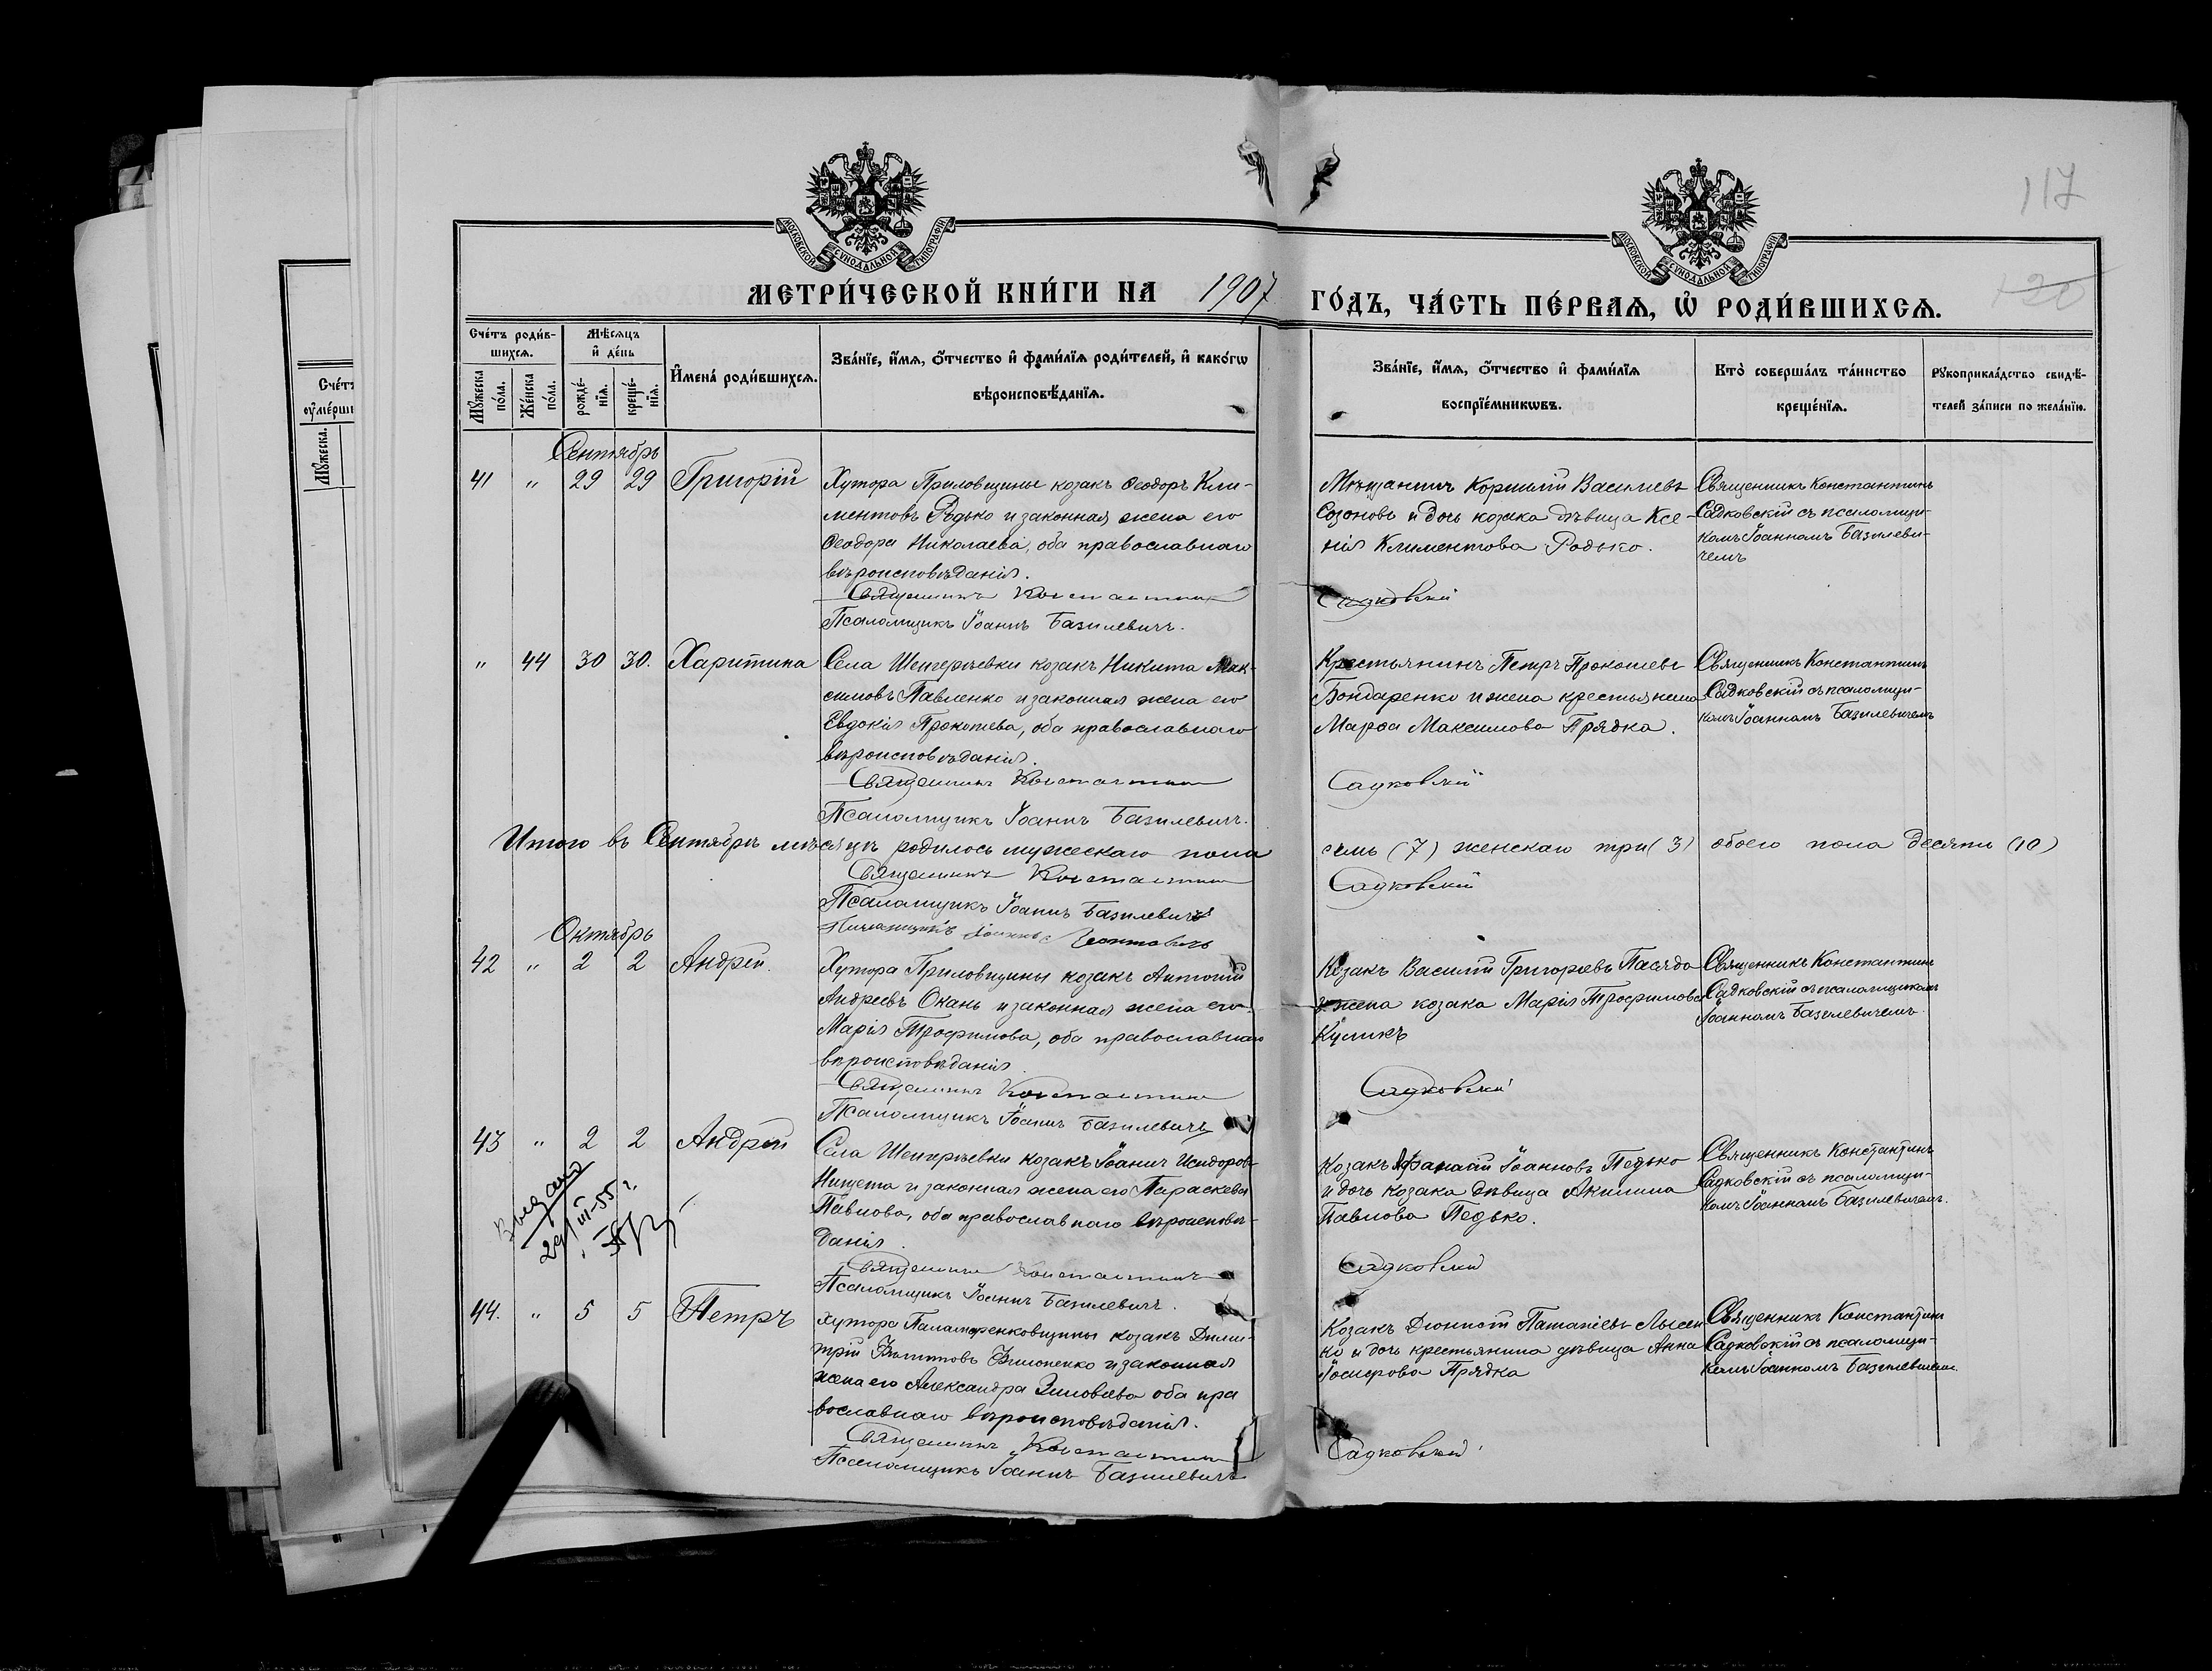 117
120
МОСКОВСКОЙ СУНОДАЛЬНОЙ ТИПОГРАФІИ
МОСКОВСКОЙ СУНОДАЛЬНОЙ ТИПОГРАФІИ
МЕТРИ́ЧЕСКОЙ КНИ́ГИ НА 1907 ГО́ДЪ, ЧА́СТЬ ПЕ́РВАѦ, Ѡ҆ РОДИ́ВШИХСѦ.
Сче́тъ роди́в-
шихсѧ.
Мѣ́сѧцъ
и҆ де́нь
Мꙋ́жеска
по́ла.
Же́нска
по́ла.
рожде́-
нїѧ.
креще́-
нїѧ.
И҆мена́ роди́вшихсѧ.
Зва́нїе, и҆́мѧ, ѻ҆́тчество и҆ фами́лїѧ роди́телей, и҆ како́гѡ
вѣроисповѣ́данїѧ.
Зва́нїе, и҆́мѧ, ѻ҆́тчество и҆ фами́лїѧ
воспрїе́мникѡвъ.
Кто̀ соверша́лъ та́инство
креще́нїѧ.
Рꙋкоприкла́дство свидѣ́-
телей за́писи по жела́нїю.
Сентябрь
41 " 29 29 Григорій
Хутора Приловщины козакъ Ѳеодоръ Кли-
ментовъ Родько и законная жена его
Ѳеодора Николаева, оба православнаго
вѣроисповѣданія.
Священникъ Константинъ Садковскій
Псаломщикъ Іоаннъ Базилевичъ.
Мѣщанинъ Корнилій Васильевъ
Созоновъ и дочь козака дѣвица Ксе-
нія Климентова Родько.
Священникъ Константинъ
Садковскій съ псаломщи-
комъ Іоанномъ Базилеви-
чемъ
" 44 30 30. Харитина
Села Шенгерѣевки козакъ Никита Мак-
симовъ Павленко и законная жена его
Евдокія Прокопьева, оба православнаго
вѣроисповѣданія.
Священникъ Константинъ Садковскій
Псаломщикъ Іоаннъ Базилевичъ.
Крестьянинъ Петръ Прокопьевъ
Бондаренко и жена крестьянина
Марѳа Максимова Прядка.
Священникъ Константинъ
Садковскій съ псаломщи-
комъ Іоанномъ Базилевичемъ
Итого въ Сентябрѣ мѣсяцѣ родилось мужескаго пола семь (7) женскаго три (3) обоего пола десять (10)
Священникъ Константинъ Садковскій
Псаломщикъ Іоаннъ Базилевичъ
Октябрь
42 " 2 2 Андрей.
Хутора Приловщины козакъ Антоній
Андреевъ Окань и законная жена его
Марія Трофимова, оба православнаго
вѣроисповѣданія.
Священникъ Константинъ Садковскій
Псаломщикъ Іоаннъ Базилевичъ
Козакъ Василій Григорьевъ Пасяда
и жена козака Марія Трофимова
Куликъ
Священникъ Константинъ
Садковскій съ псаломщикомъ
Іоанномъ Базилевичемъ.
43 " 2 2 Андрей
Села Шенгерѣевки козакъ Іоаннъ Исидоровъ
Нищета и законная жена его Параскева
Павлова, оба православнаго вѣроисповѣ-
данія.
Священникъ Константинъ Садковскій
Псаломщикъ Іоаннъ Базилевичъ.
Козакъ Афанасій Іоанновъ Педько
и дочь козака дѣвица Акилина
Павлова Педько.
Священникъ Константинъ
Садковскій съ псаломщи-
комъ Іоанномъ Базилевичемъ.
29/III-55 г.
44. " 5 5 Петръ
Хутора Паламаренковщины козакъ Дими-
трій
и законная
жена его Александра Зиновьева оба пра
вославнаго вѣроисповѣданія.
Священникъ Константинъ Садковскій
Псаломщикъ Іоаннъ Базилевичъ
Козакъ Діонисій Лысен
ко и дочь крестьянина дѣвица Анна
Прядка
Священникъ Константинъ
Садковскій съ псаломщи-
комъ Іоанномъ Базилевичемъ.
Сче́тъ
Мꙋ́жеска.